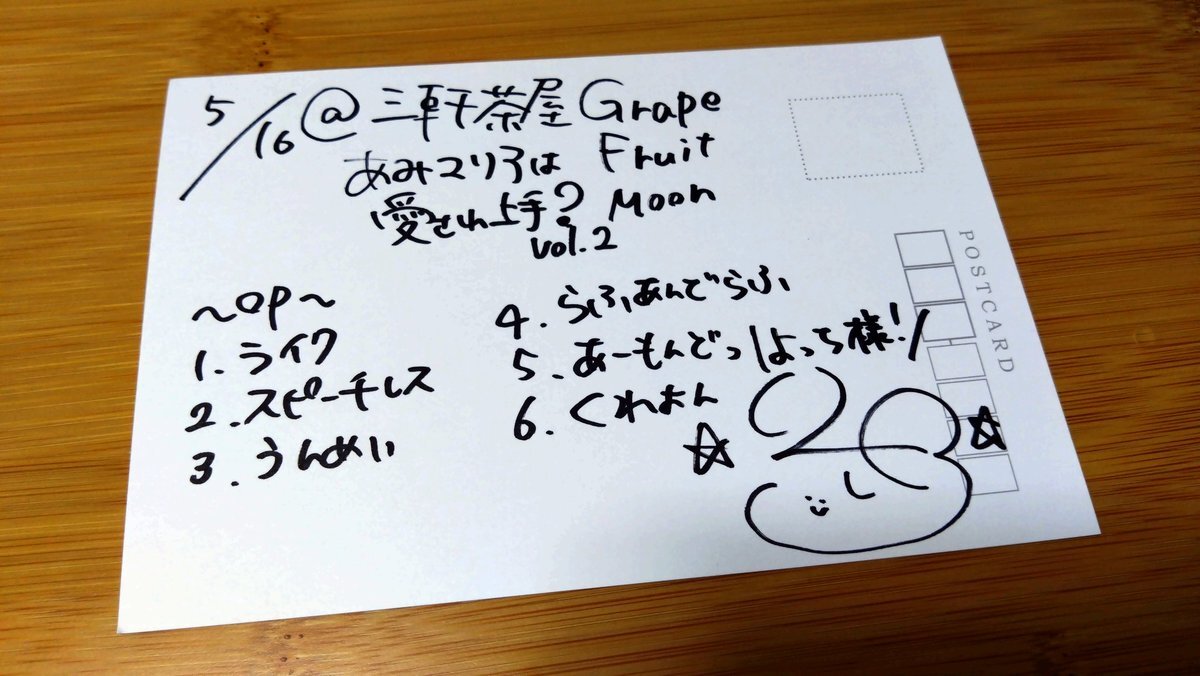 5/16 @ 三軒茶屋 Grape
Fruit
Moon
あみのり子は
愛され上手?
vol.2
~op~
1. ライク
2. スピーチレス
3. うんめい
4. らふあんどらふ
5. あーもんどっはよっち様!!
6. くれよん
POSTCARD